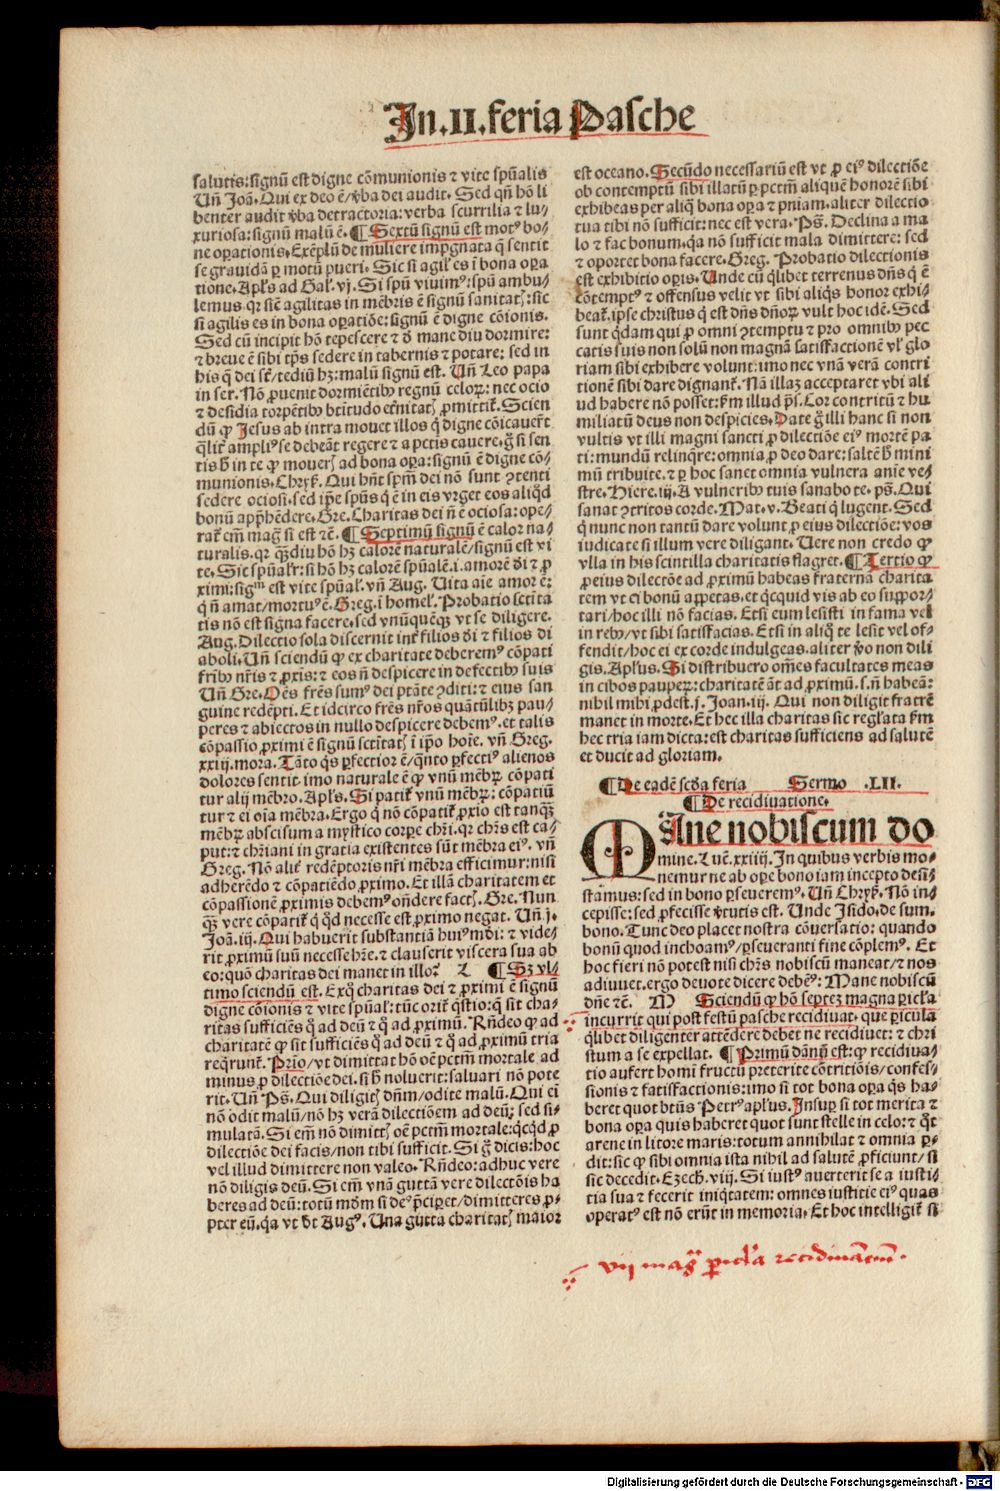 In.II.feria Pasche
salutis:signũ est digne cõmunionis ⁊ vite spũalis
Uñ Joã. Qui ex deo ẽ/ v̾ba dei audit. Sed qñ hõ li
benter audit v̾ba detractoria: verba scurrilia ⁊ lu⸗
xuriosa: signũ malũ ẽ. ¶ Sextũ signũ est motꝰ bo⸗
ne oꝑationis. Exẽplũ de muliere imp̃gnata q̃ sentit
se grauidã ꝑ motũ pueri. Sic si agiľ es ĩ bona oꝑa
tione. Apľs ad Gaľ. vj. Si spũ viuimꝰ: spũ ambu⸗
lemus. qr sicẽ agilitas in mẽbris ẽ signũ sanitatꝭ: sic
si agilis es in bona oꝑatiõe: signũ ẽ digne cõionis.
Sed cũ incipit hõ tepescere ⁊ ð mane diu dormire:
⁊ breue ẽ sibi tp̃s sedere in tabernis ⁊ potare: sed in
his q̃ dei sũt/ tediũ hꝫ: malũ signũ est. Uñ Leo papa
in ser. Nõ ꝓuenit dormiẽtibꝰ regnũ celoꝝ: nec ocio
⁊ desidia torpẽtibꝰ btĩtudo eťnitatꝭ ꝓmittiť. Scien
dũ ꝙ Jesus ab intra mouet illos q̃ digne cõicauerũt
q̃liť ampliꝰ se debeãt regere ⁊ a pctis cauere. g̃ si sen
tis ħ in te ꝙ moueris ad bona oꝑa: signũ ẽ digne cõ⸗
munionis. Chryš. Qui hñt spm̃ dei nõ sunt ꝯtenti
sedere ociosi. sed ip̃e spũs q̃ ẽ in eis vrget eos aliq̃d
bonũ app̃hẽdere. Gre. Charitas dei ñ ẽ ociosa: ope⸗
rať em̃ mag̃ si est ⁊c̃. ¶ Septimũ signũ ẽ calor na⸗
turalis. qr q̃ꝫdiu hõ hꝫ calorẽ naturalẽ/ signũ est vi
te. Sic spũalť: si hõ hꝫ calorẽ spũalẽ. i. amorẽ dĩ ⁊ ꝓ
ximi: sigᵐ est vite spũaľ. vñ Aug. Uita aĩe amor ẽ:
q̃ ñ amat/ mortuꝰ ẽ. Greg. ĩ homeľ. Probatio sctĩta
tis nõ est signa facere. sed vnũquẽqꝫ vt se diligere.
Aug. Dilectio sola discernit inť filios dĩ ⁊ filios di
aboli. Uñ sciendũ ꝙ ex charitate deberemꝰ cõpati
fr̃ibꝰ nr̃is ⁊ ꝓxĩs: ⁊ eos ñ despicere in defectibꝰ suis
Uñ Gre. Oẽs fr̃es sumꝰ dei ptãte ꝯditi: ⁊ eius san
guine redẽpti. Et idcirco fr̃es nr̃os quãtũlibꝫ pau⸗
peres ⁊ abiectos in nullo despicere debemꝰ. et talis
cõpassio ꝓximi ẽ signũ sctĩtatꝭ ĩ ip̃o hoĩe. vñ Greg.
xxiij. mora. Tãto q̃s ꝑfectior ẽ/ q̃nto ꝑfectiꝰ alienos
dolores sentit. imo naturale ẽ ꝙ vnũ mẽbꝝ cõpati
tur alij mẽbro. Apľs. Si patiť vnũ mẽbꝝ: cõpatiũ
tur ⁊ ei oĩa mẽbra. Ergo q̃ nõ cõpatiť ꝓxio est tanqꝫ
mẽbꝝ abscisum a mystico corpe chr̃i. qr chr̃s est ca⸗
put: ⁊ chr̃iani in gratia existentes sũt mẽbra eiꝰ. vñ
Greg. Nõ aliť redẽptoris nr̃i mẽbra efficimur: nisi
adherẽdo ⁊ cõpatiẽdo ꝓximo. Et illã charitatem et
cõpassionẽ ꝓximis debemꝰ oñdere factꝭ. Gre. Nun
qꝫ vere cõpatiť q̃ q̃d necesse est ꝓximo negat. Uñ j.
Joã. iij. Qui habuerit substantiã huiꝰ mõi: ⁊ vide⸗
rit ꝓximũ suũ necesse hr̃e. ⁊ clauserit viscera sua ab
eo: quõ charitas dei manet in illo? L ¶ Sꝫ vl⸗
timo sciendũ est. Exq̃ charitas dei ⁊ ꝓximi ẽ signũ
digne cõionis ⁊ vite spũaľ: tũc oriť q̃stio: q̃ sit cha⸗
ritas sufficiẽs q̃ ad deũ ⁊ q̃ ad ꝓximũ. Rñdeo ꝙ ad
charitatẽ ꝙ sit sufficiẽs q̃ ad deũ ⁊ q̃ ad ꝓximũ tria
req̃runť. Prĩo/ vt dimittat hõ oẽ pctm̃ mortale ad
minus ꝓ dilectiõe dei. si ħ noluerit: saluari nõ pote
rit. Uñ Ps̃. Qui diligitꝭ dñm/ odite malũ. Qui ei
nõ odit malũ/ nõ hꝫ verã dilectiõem ad deũ; sed si⸗
mulatã. Si em̃ nõ dimittꝭ oẽ pctm̃ mortale: q̃cq̃d ꝓ
dilectiõe dei facis/ non tibi sufficit. Si g̃ dicis: hoc
vel illud dimittere non valeo. Rñdeo: adhuc vere
nõ diligis deũ. Si em̃ vnã guttã vere dilectiõis ha
beres ad deũ: totũ mũdm si deꝰ p̃ciperet/ dimitteres ꝓ⸗
pter eũ. q̃a vt dič Augꝰ. Una gutta charitatꝭ maior
est oceano. Secũdo necessariũ est vt ꝓ eiꝰ dilectiõe
ob contemptũ sibi illatũ ꝑ pctm̃ aliquẽ honorẽ sibi
exhibeas per aliq̃ bona oꝑa ⁊ pñiam. aliter dilectio
tua tibi nõ sufficit: nec est vera. Ps̃. Declina a ma
lo ⁊ fac bonum. q̃a nõ sufficit mala dimittere: sed
⁊ oportet bona facere. Greg. Probatio dilectionis
est exhibitio oꝑis. Unde cũ q̃libet terrenus dñs q̃ ẽ
cõtemptꝰ ⁊ offensus velit vt sibi aliq̃s honor exhi⸗
beať. ip̃se christus q̃ est dñs dñoꝝ vult hoc idẽ. Sed
sunt q̃dam qui ꝓ omni ꝯtemptu ⁊ pro omnibꝰ pec
catis suis non solũ non magnã satisfactionẽ vľ glo
riam sibi exhibere volunt: imo nec vnã verã contri
tionẽ sibi dare dignanť. Nã illaꝫ acceptaret vbi ali
ud habere nõ posset: ẜm illud ps̃. Cor contritũ ⁊ hu
miliatũ deus non despicies. Date g̃ illi hanc si non
vultis vt illi magni sancti ꝓ dilectiõe eiꝰ mortẽ pa
ti: mundũ relinq̃re: omnia ꝓ deo dare: saltẽ ħ mini
mũ tribuite. ⁊ ꝑ hoc sanet omnia vulnera anĩe ve⸗
stre. Hiere. iij. A vulneribꝰ tuis sanabo te. ps̃. Qui
sanat ꝯtritos corde. Mat. v. Beati q̃ lugent. Sed
q̃ nunc non tantũ dare volunt ꝓ eius dilectiõe: vos
iudicate si illum vere diligant. Uere non credo ꝙ
vlla in his scintilla charitatis flagret. ¶ Tertio ꝙ
ꝓ eius dilectõe ad ꝓximũ habeas fraternã charita
tem vt ei bonũ appetas. et q̃cquid vis ab eo suppor⸗
tari/ hoc illi nõ facias. Etsi eum lesisti in fama vel
in rebꝰ/ vt sibi satisfacias. Etsi in aliq̃ te lesit vel of⸗
fendit/ hoc ei ex corde indulgeas. aliter v̾o non dili
gis. Apľus. Si distribuero om̃es facultates meas
in cibos paupeꝝ: charitatẽ ãt ad ꝓximũ. s. ñ habeã:
nihil mihi ꝓdest. j. Joan. iij. Qui non diligit fratrẽ
manet in morte. Et hec illa charitas sic regľata ẜm
hec tria iam dicta: est charitas sufficiens ad salutẽ
et ducit ad gloriam.
¶ De eadẽ scḋa feria Sermo .LII.
¶ De recidiuatione.
MAne nobiscum do
mine. Luẽ. xxiiij. In quibus verbis mo⸗
nemur ne ab oꝑe bono iam incepto desi⸗
stamus: sed in bono ꝑseueremꝰ. Uñ Chryš. Nõ in⸗
cepisse: sed ꝑfecisse v̾tutis est. Unde Isido. de sum.
bono. Tunc deo placet nostra cõuersatio: quando
bonũ quod inchoamꝰ/ ꝑseueranti fine cõplemꝰ. Et
hoc fieri nõ potest nisi chr̃s nobiscũ maneat/ ⁊ nos
adiuuet. ergo deuote dicere debẽꝰ: Mane nobiscũ
dñe ⁊c̃. M Sciendũ ꝙ hõ septeꝫ magna ꝑicľa
incurrit qui post festũ pasche recidiuat. que ꝑicula
q̃libet diligenter attẽdere debet ne recidiuet: ⁊ chri
stum a se expellat. ¶ Primũ dãnũ est: ꝙ recidiua⸗
tio aufert homĩ fructũ preterite cõtritiõis/ confes⸗
sionis ⁊ satisfactionis: imo si tot bona oꝑa q̃s ha⸗
beret quot btũs Petrꝰ apľus. Insuꝑ si tot merita ⁊
bona oꝑa quis haberet quot sunt stelle in celo: ⁊ q̃t
arene in litore maris: totum annihilat ⁊ omnia ꝑ⸗
dit: sic ꝙ sibi omnia ista nihil ad salutẽ ꝓficiunt/ si
sic decedit. Ezecħ. viij. Si iustꝰ auerterit se a iusti⸗
tia sua ⁊ fecerit iniq̃tatem: omnes iustitie eiꝰ quas
operatꝰ est nõ erũt in memoria. Et hoc intelligiť si
vij mag̃ ꝑicľa recidiuãciũ.
Digitalisierung gefördert durch die Deutsche Forschungsgemeinschaft - DFG